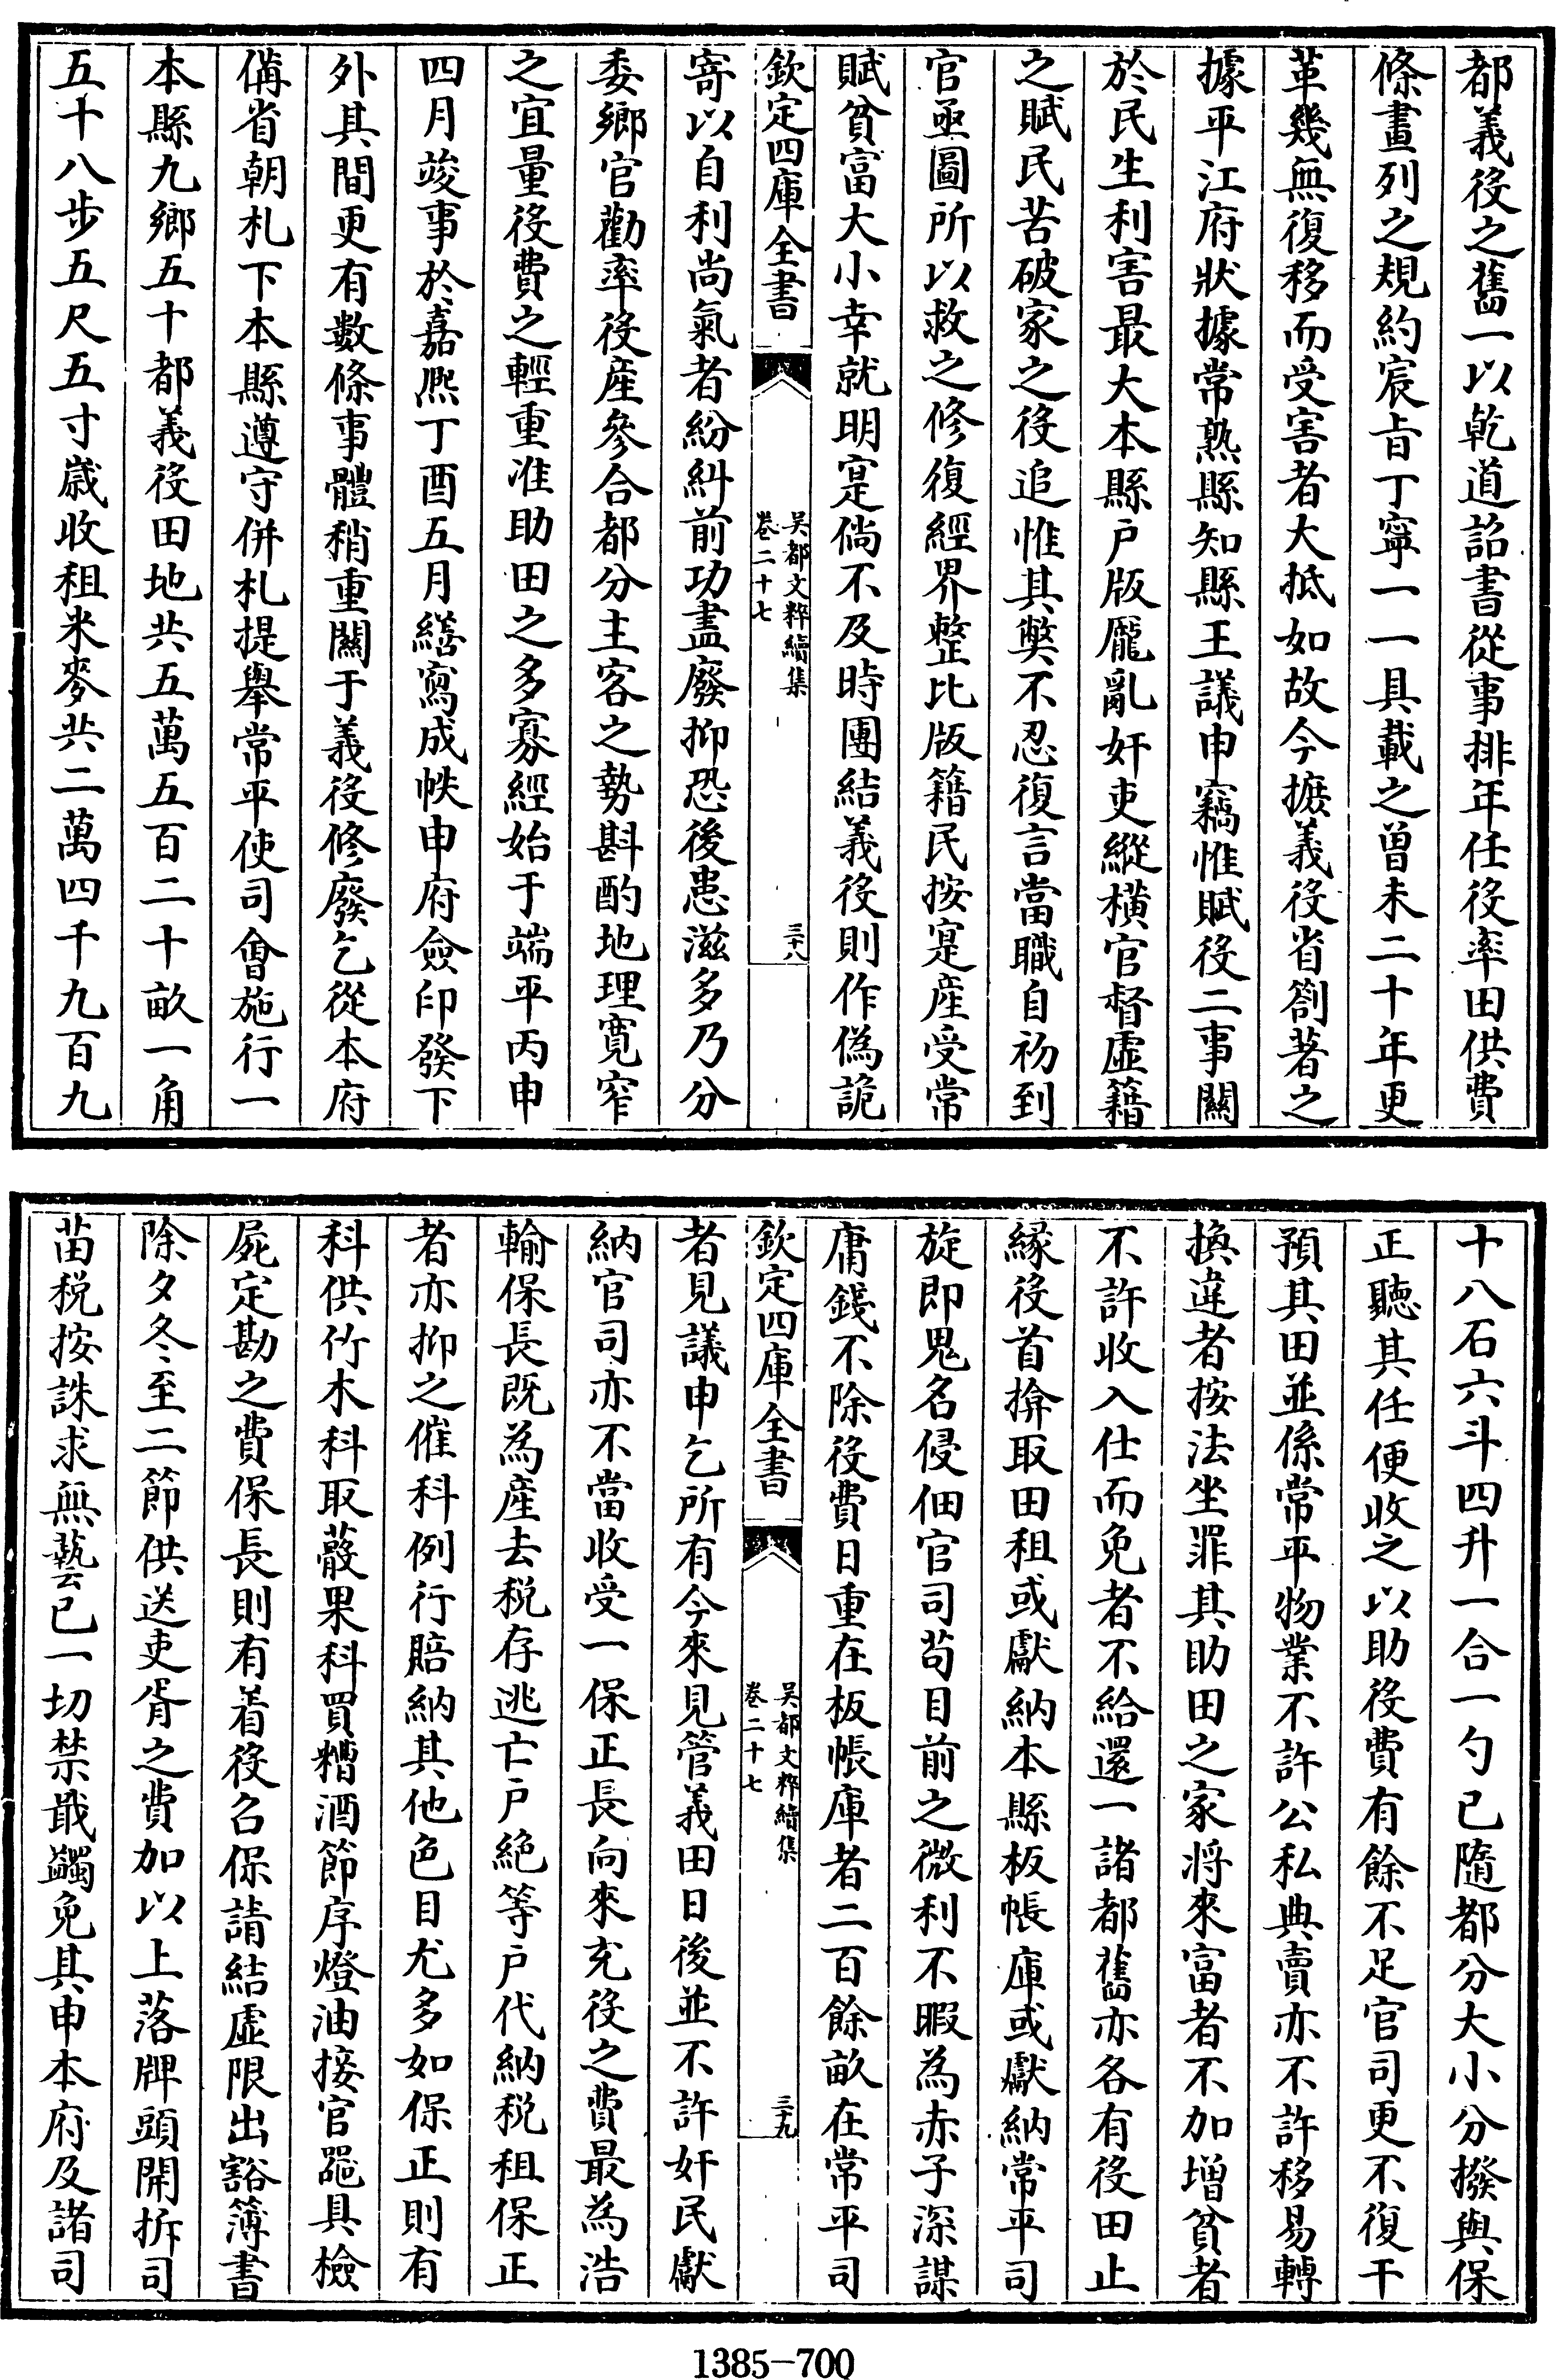 都義役之舊一以乾道詔書從事排年任役率田供費
條畫列之規約宸㫖丁寧一一具載之曾未二十年更
革幾無復移而受害者大抵如故今摭義役省劄著之
據平江府狀據常熟縣知縣王議申竊惟賦役二事關
於民生利害最大本縣户版龎亂奸吏縱横官督虚籍
之賦民苦破家之役追惟其獘不忍復言當職自初到
官亟圖所以救之修復經界整比版籍民按寔産受常
賦貧富大小幸就明寔倘不及時團結義役則作偽詭
欽定四庫全書
吴都文粹續集
卷二十七
三十八
寄以自利尚氣者紛糾前功盡廢抑恐後患滋多乃分
委鄉官勸率役産參合都分主客之勢斟酌地理寛窄
之宜量役費之輕重准助田之多寡經始于端平丙申
四月竣事於嘉熈丁酉五月繕寫成帙申府僉印發下
外其間更有數條事體稍重關于義役修廢乞從本府
備省朝札下本縣遵守併札提舉常平使司會施行一
本縣九鄉五十都義役田地共五萬五百二十畝一角
五十八步五尺五寸歲收租米麥共二萬四千九百九
十八石六斗四升一合一勺已隨都分大小分撥與保
正聽其任便收之以助役費有餘不足官司更不復干
預其田並係常平物業不許公私典賣亦不許移易轉
換違者按法坐罪其助田之家將來富者不加增貧者
不許收入仕而免者不給還一諸都舊亦各有役田止
緣役首揜取田租或獻納本縣板帳庫或獻納常平司
旋即鬼名侵佃官司苟目前之微利不暇為赤子深謀
庸錢不除役費日重在板帳庫者二百餘畝在常平司
欽定四庫全書
吴都文粹續集
卷二十七
三十九
者見議申乞所有今來見管義田日後並不許奸民獻
納官司亦不當收受一保正長向來充役之費最為浩
輸保長既為産去税存逃亡户絶等户代納税租保正
者亦抑之催科例行賠納其他色目尤多如保正則有
科供竹木科取蔬果科買糟酒節序燈油接官噐具檢
屍定勘之費保長則有着役名保請結虚限出豁簿書
除夕冬至二節供送吏胥之費加以上落牌頭開拆司
苗税按誅求無藝已一切禁戢蠲免其申本府及諸司
1385-700